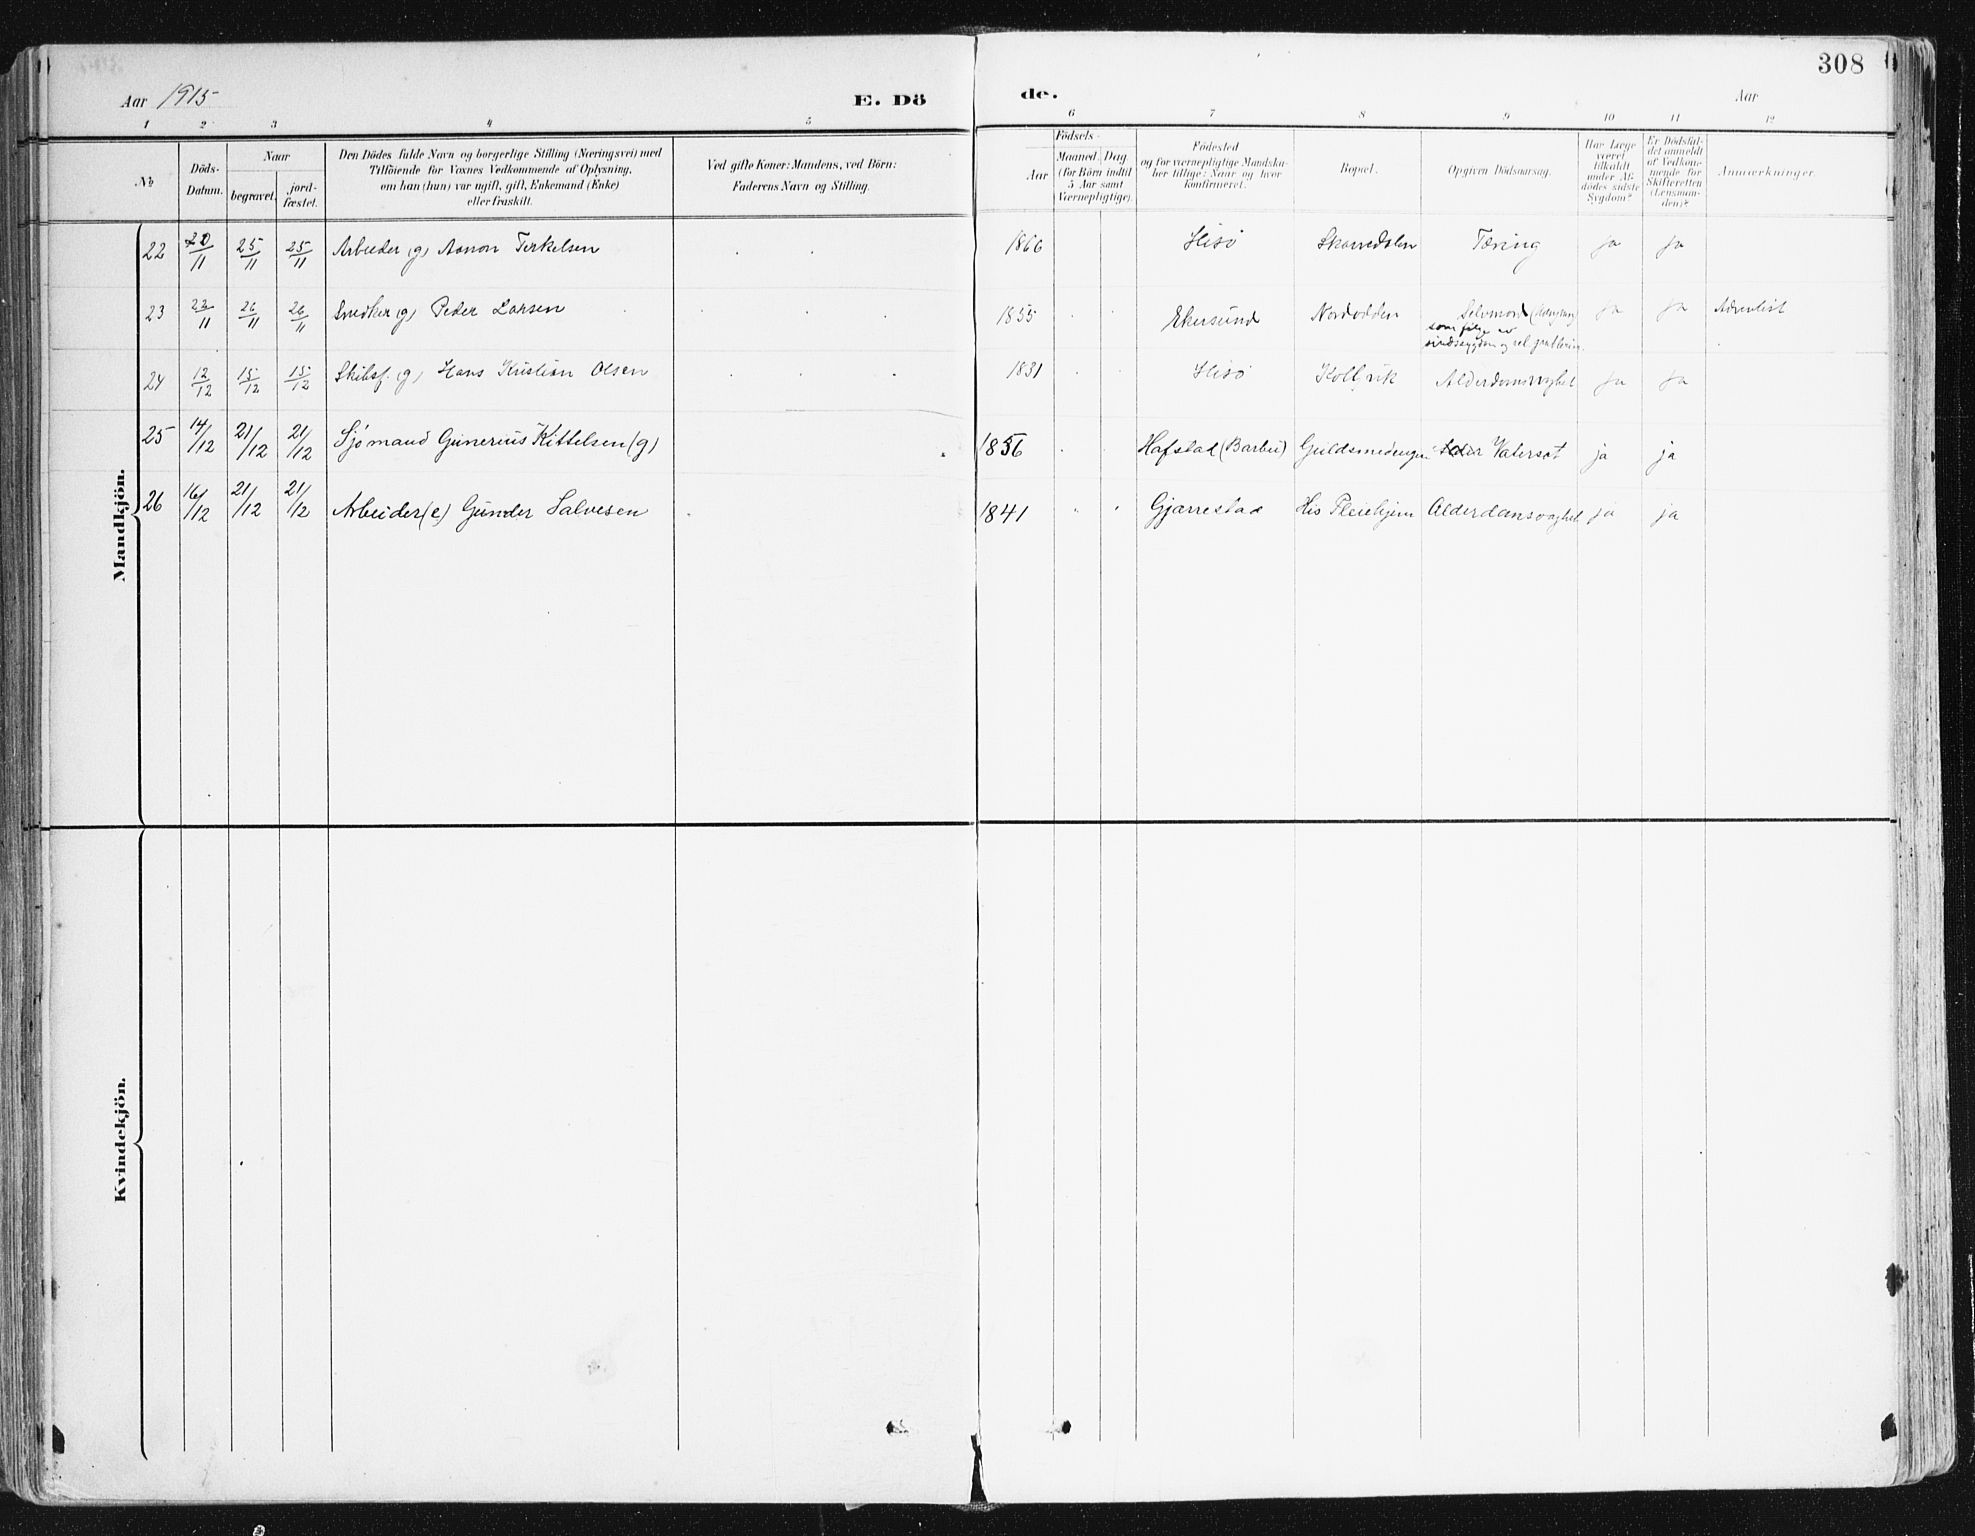 308
Aar 1915
E. Dö
de.
Aar
1 2 3 4 5 6 7 8 9 10 11 12
No
Döds-
Datum.
Naar
begravet.
jord-
fæstet.
Den Dödes fulde Navn og borgerlige Stilling (Næringsvei) med
Tilföiende for Voxnes Vedkommende af Oplysning,
om han (hun) var ugift, gift, Enkemand (Enke)
eller fraskilt.
Ved gifte Koner: Mandens, ved Börn:
Faderens Navn og Stilling.
Födsels-
Aar
Maaned. Dag
(for Börn indtil
5 Aar samt
Værnepligtige).
Födested
og for værnepligtige Mandska-
ber tillige: Naar og hvor
konfirmeret.
Bopæl.
Opgiven Dödsaarsag.
Har Læge
været
tilkaldt
under Af-
dödes sidste
Sygdom?
Er Dödsfal-
det anmeldt
af Vedkom-
mende for
Skifteretten
(Lensman-
den)?
Anmærkninger.
Mandkjön.
22 20/11 25/11 25/11 Arbeider (g) Aanon Terkelsen 1866 Hisö Skarredalen Tæring ja ja
23 22/11 26/11 26/11 Snedker (g) Peder Larsen 1855 Ekersund Nordodden Selvmord som følge av sindssygdom og rel. ja ja Adventist
24 12/12 15/12 15/12 Skibsf. (g) Hans Kristian Olsen 1831 Hisö Kolbjvik Alderdomssvaghet ja ja
25 14/12 21/12 21/12 Sjömand Gunerius Kittelsen (g) 1856 Hafstad (Barbu) Guldsmedengen Vatersot ja ja
26 16/12 21/12 21/12 Arbeider (e) Gunder Salvesen 1841 Gjærrestad His Pleiehjem Alderdomssvaghet ja ja
Kvindekjön.